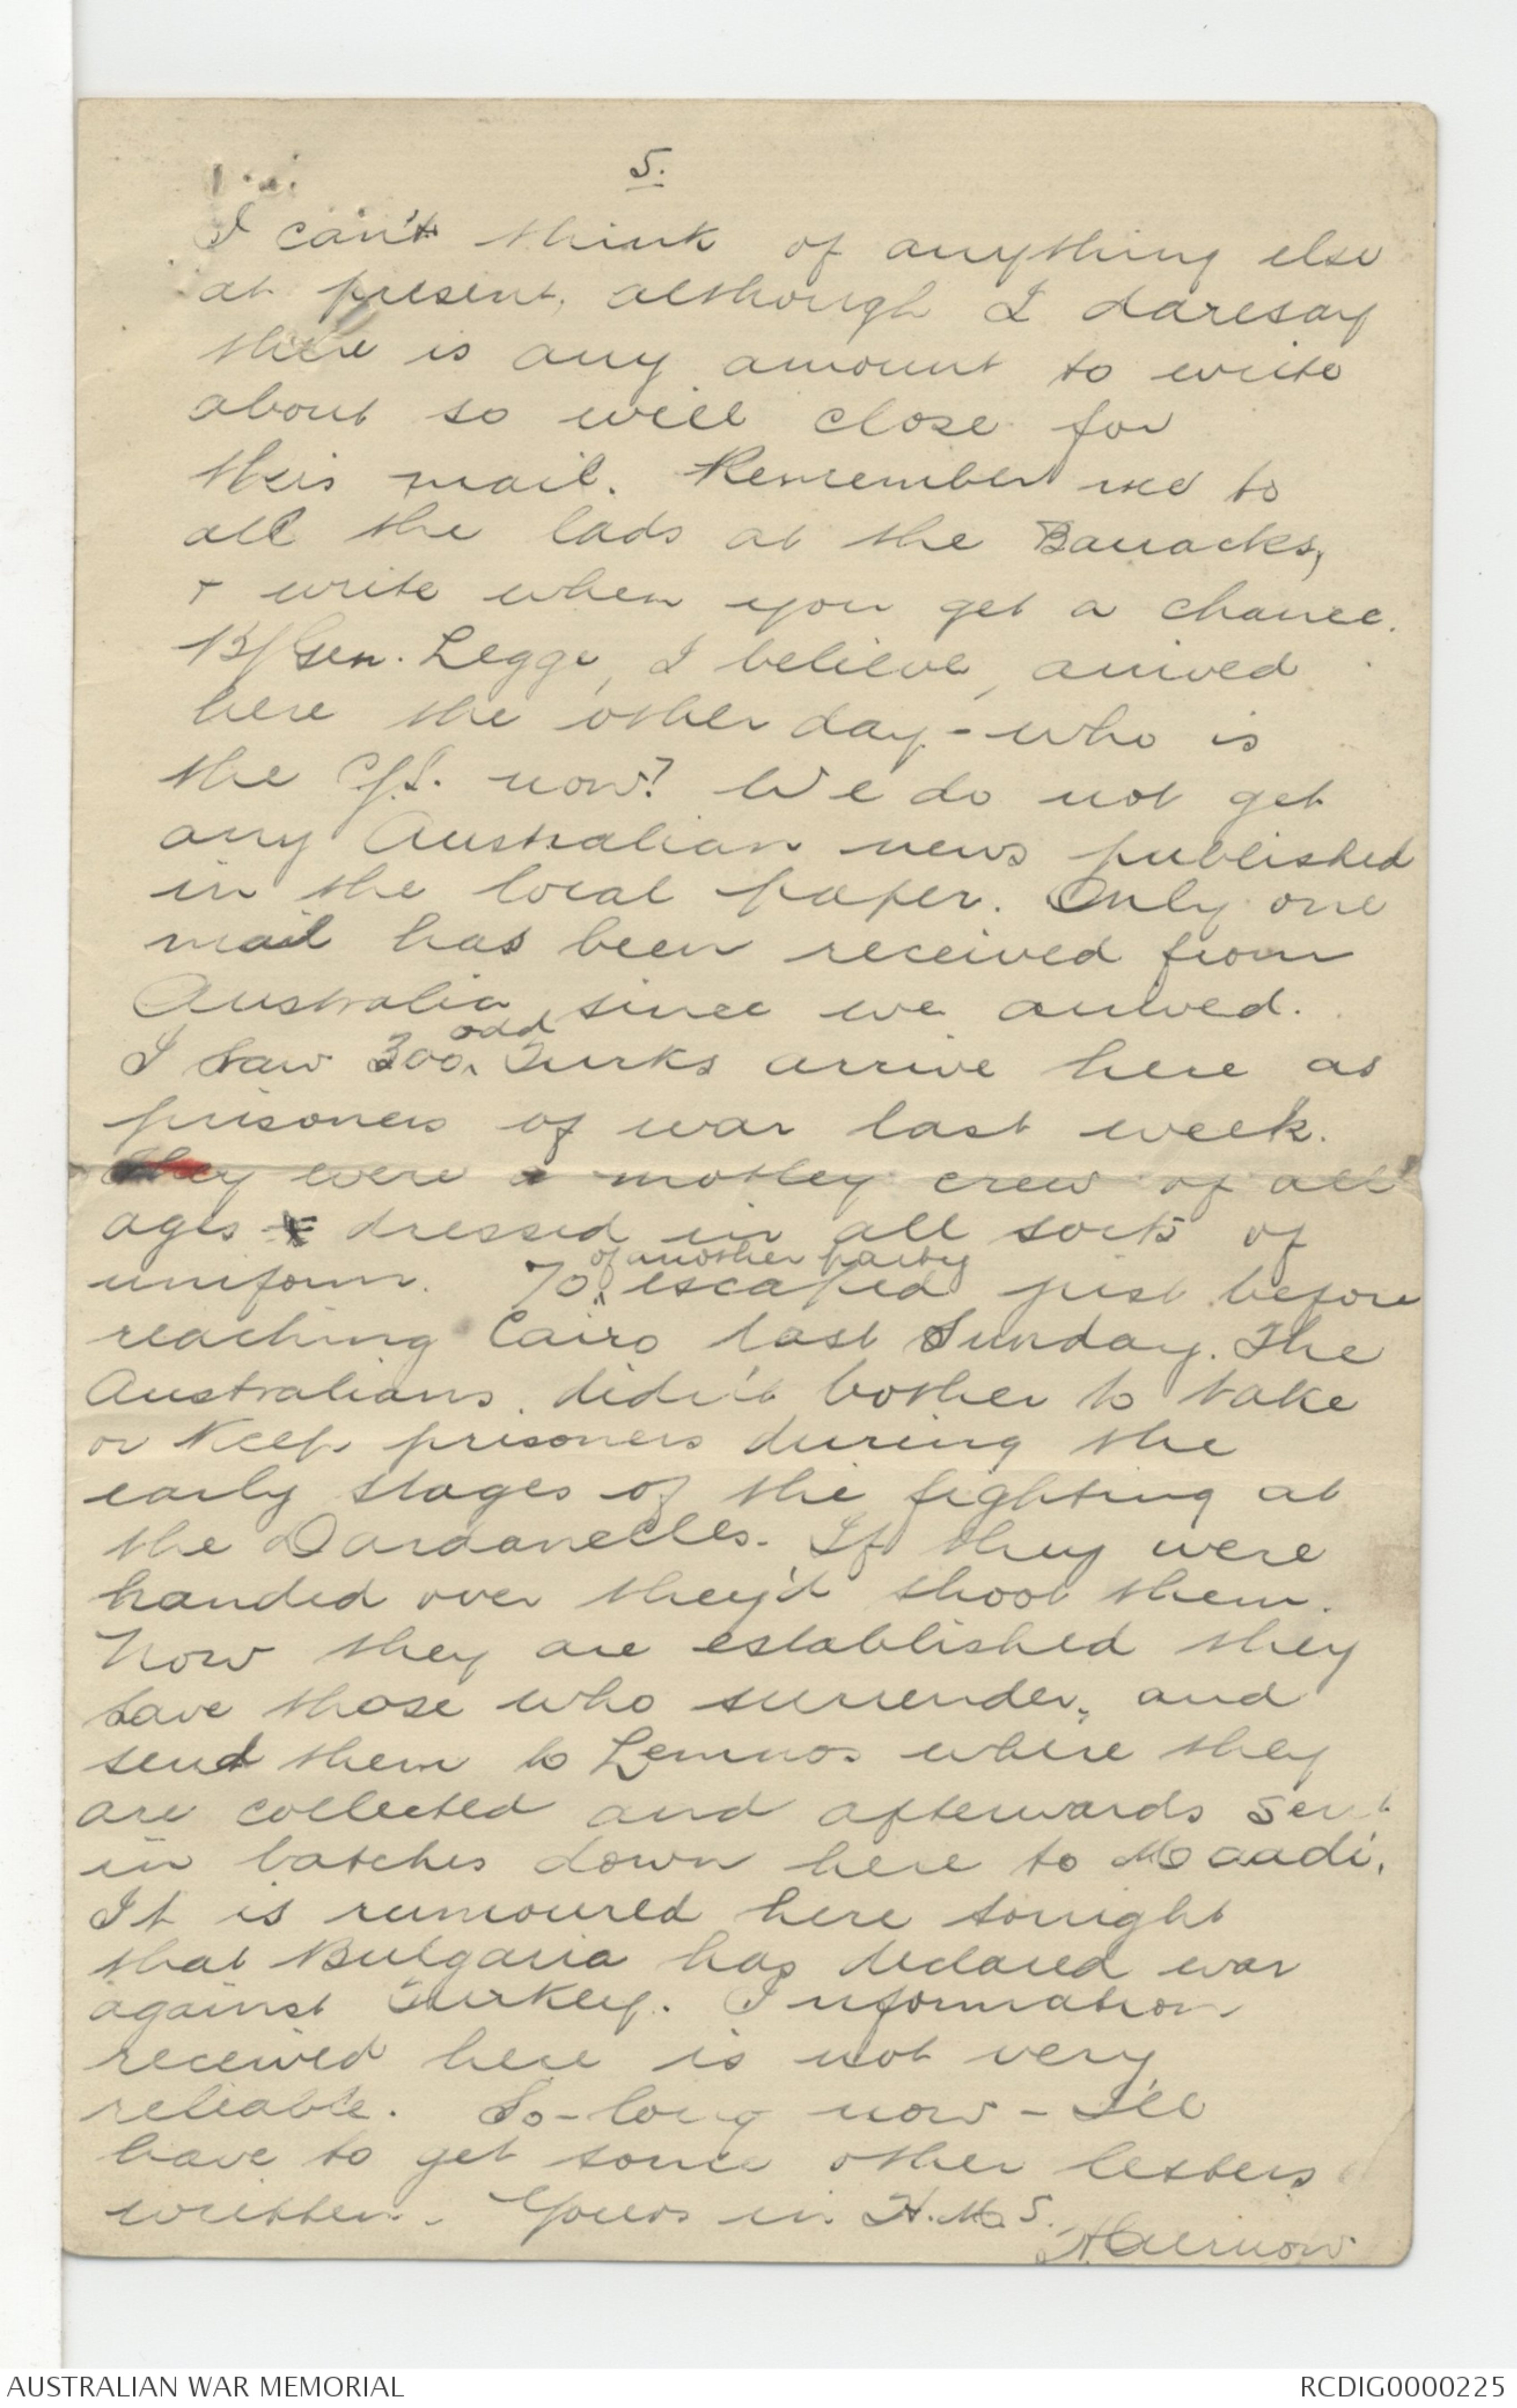 5.
I can't think of anything else
at present, although I daresay
there is any amount to write
about so will close for
this mail. Remember me to
all the lads at the Barracks,
+ write when you get a chance.
B/Gen. Legge, I believe, arrived
here the other day - who is
the now? We do not get
any Australian news published
in the local paper. Only one
mail has been received from
Australia since we arrived.
I saw 300 odd Turks arrive here as
prisoners of war last week.
They were a motley crew of all
ages & dressed in all sorts of
uniform. 70 of another party escaped just before
reaching Cairo last Sunday. The
Australians didn't bother to take
or keep prisoners during the
early stages of the fighting at
the Dardanelles. If they were
handed over they'd shoot them.
Now they are established they
save those who surrender, and
send them to Lemnos where they
are collected and afterwards sent
in batches down here to Maadi.
It is rumoured here tonight
that Bulgaria has declared war
against Turkey. Information
received here is not very
reliable. So-long now - I'll
have to get some other letters
written. Yours in H.M.S.
AUSTRALIAN WAR MEMORIAL
RCDIG0000225